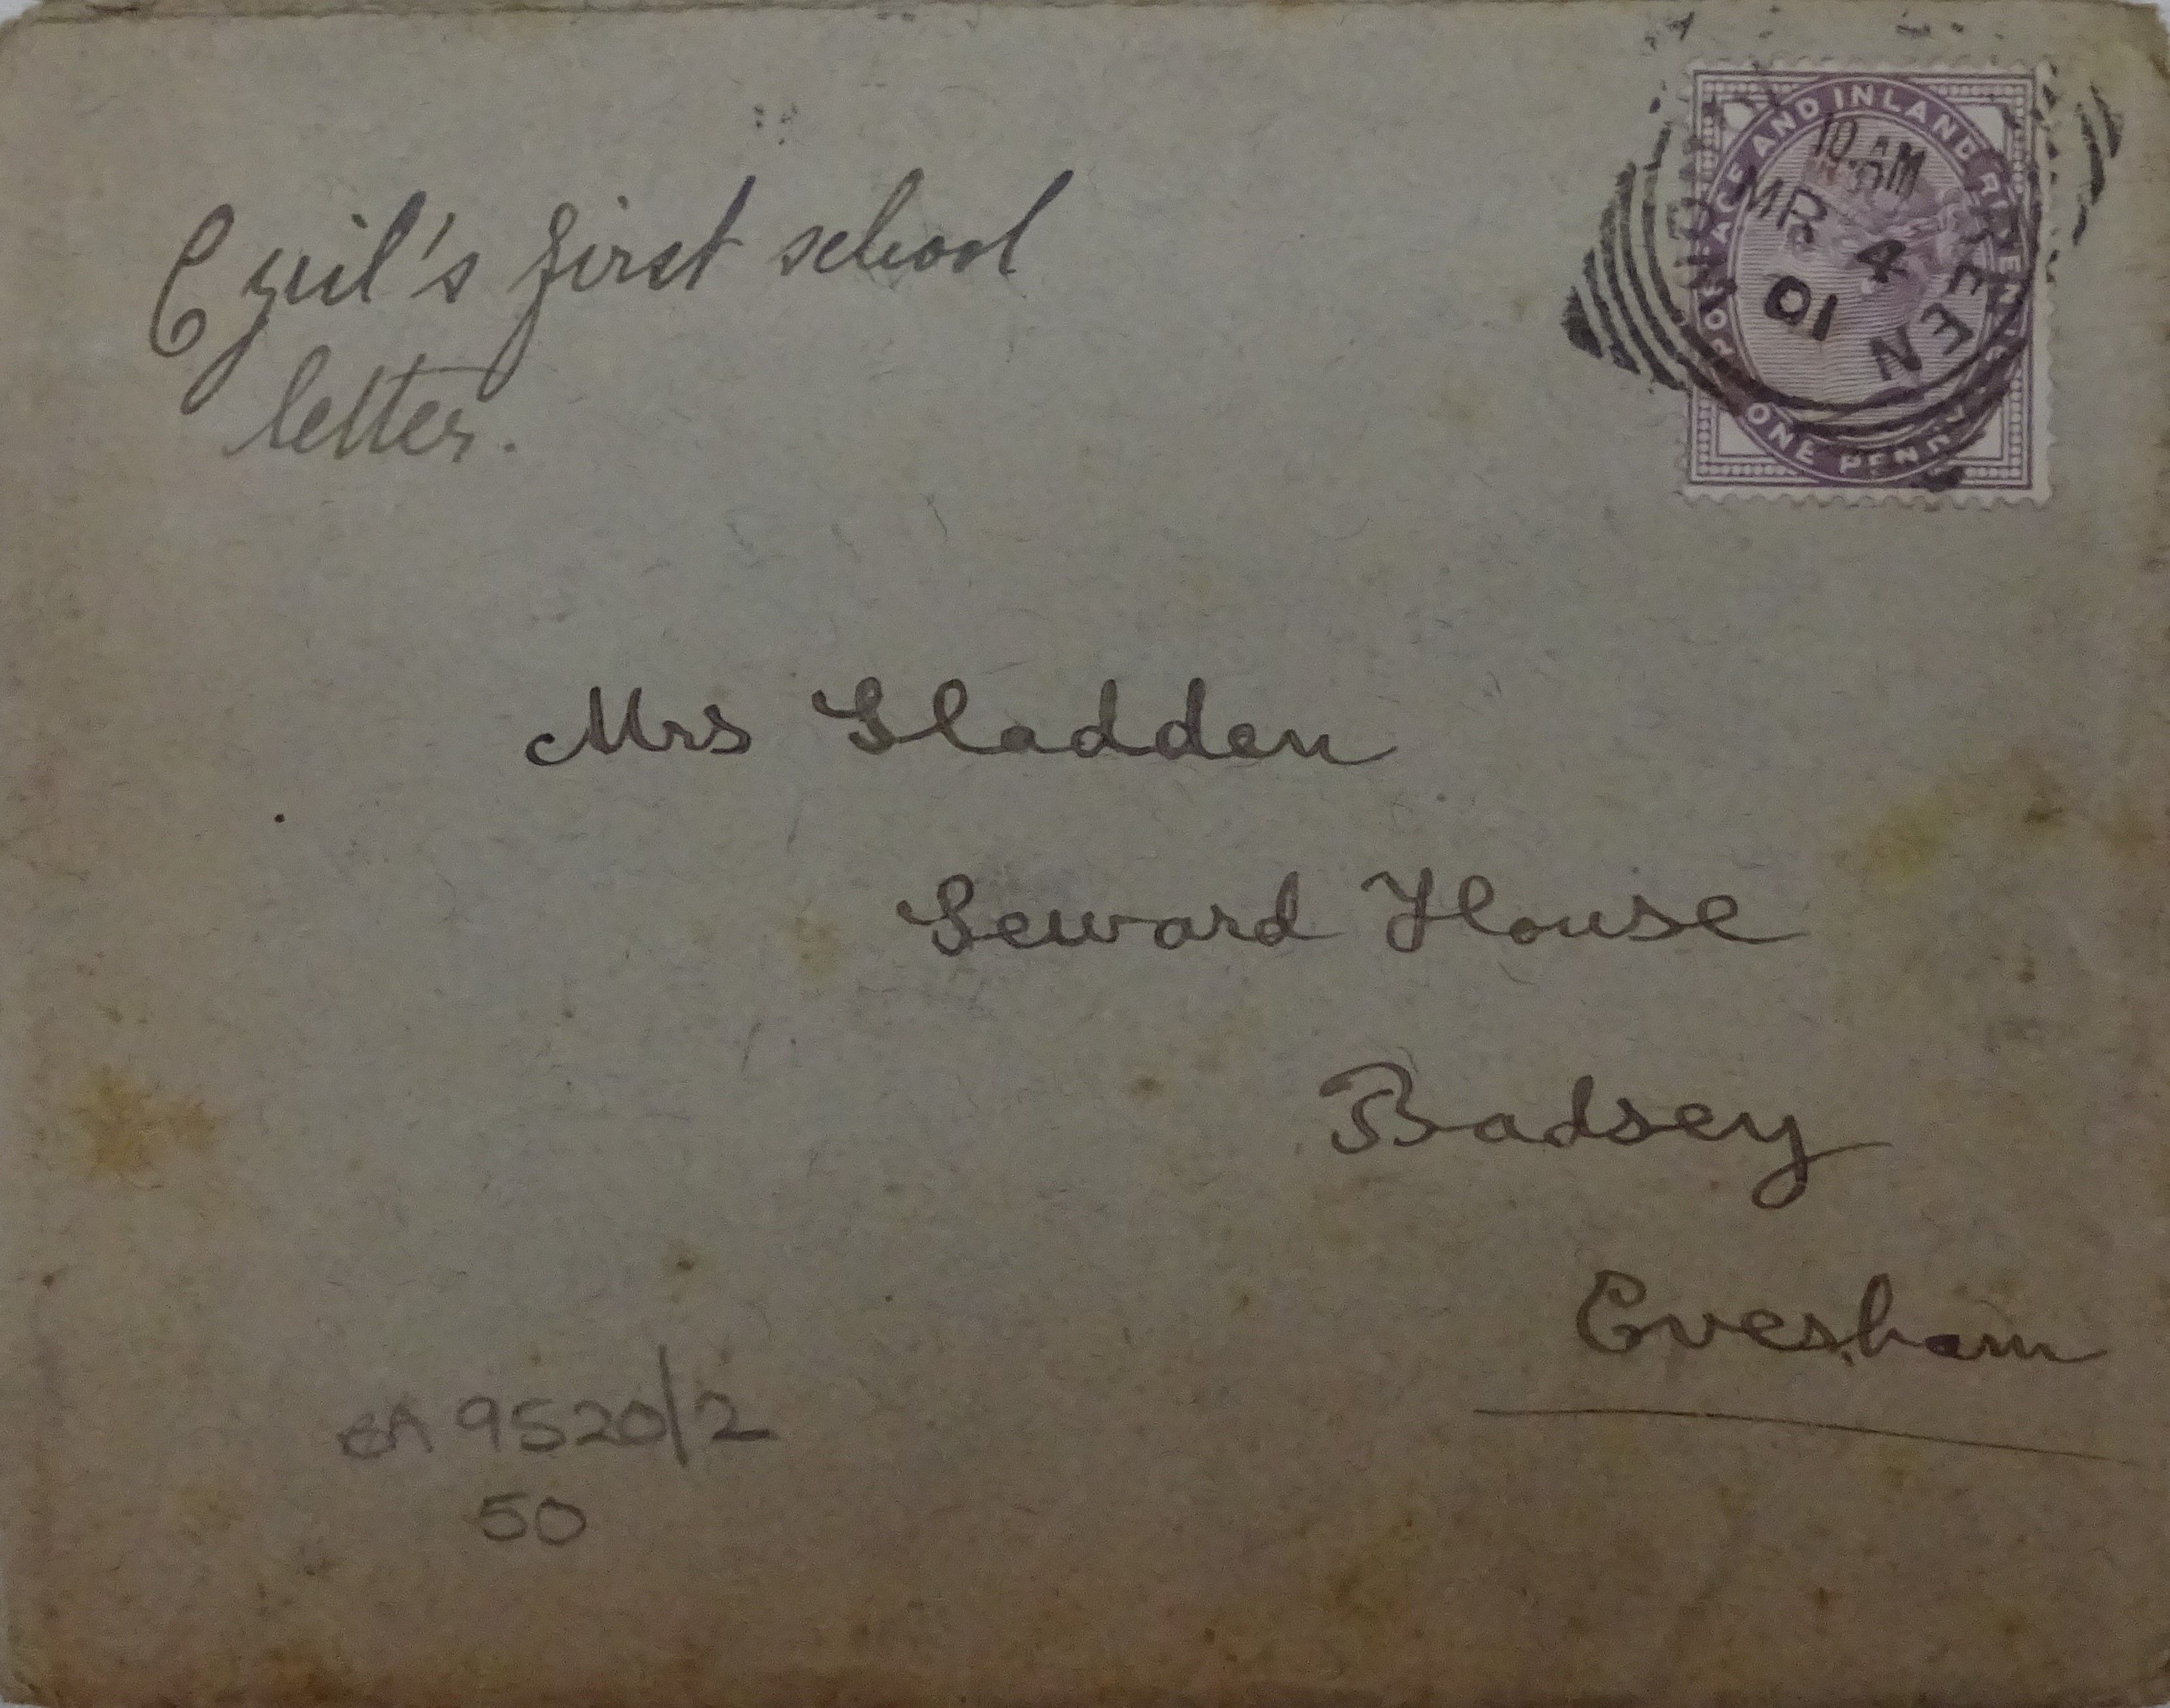 Cyril's first school
letter.
POSTAGE AND INLAND REVENUE
ONE PENNY
10 AM
MR 4
01
Mrs Sladden
Seward House
Badsey
Evesham
9520/2
50